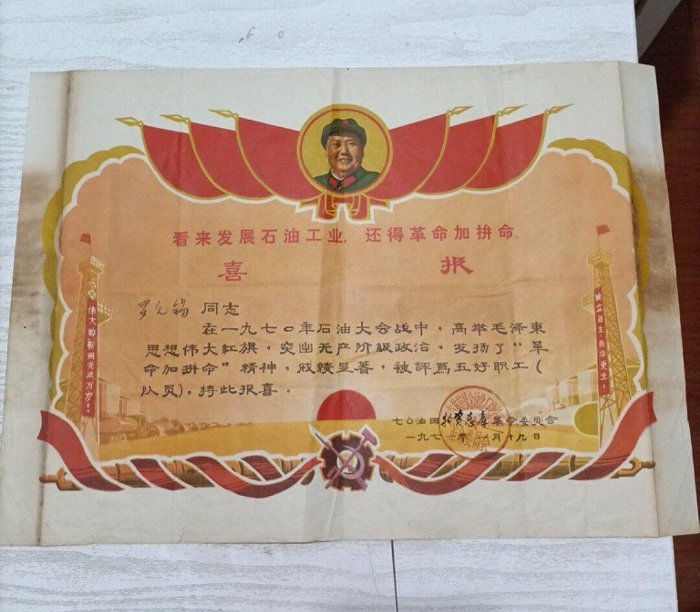 看来发展石油工业，还得革命加拚命。
喜 报
同志
在一九七〇年石油大会战中，高举毛泽东
思想伟大红旗，突出无产阶级政治，发扬了“革
命加拚命”精神，成绩显著，被評爲五好职工（
队员）。特此报喜。
七〇油田 革命委员会
一九七一年 月十九日
伟大的 鞍钢宪法万岁！
独立自主、自力更生！